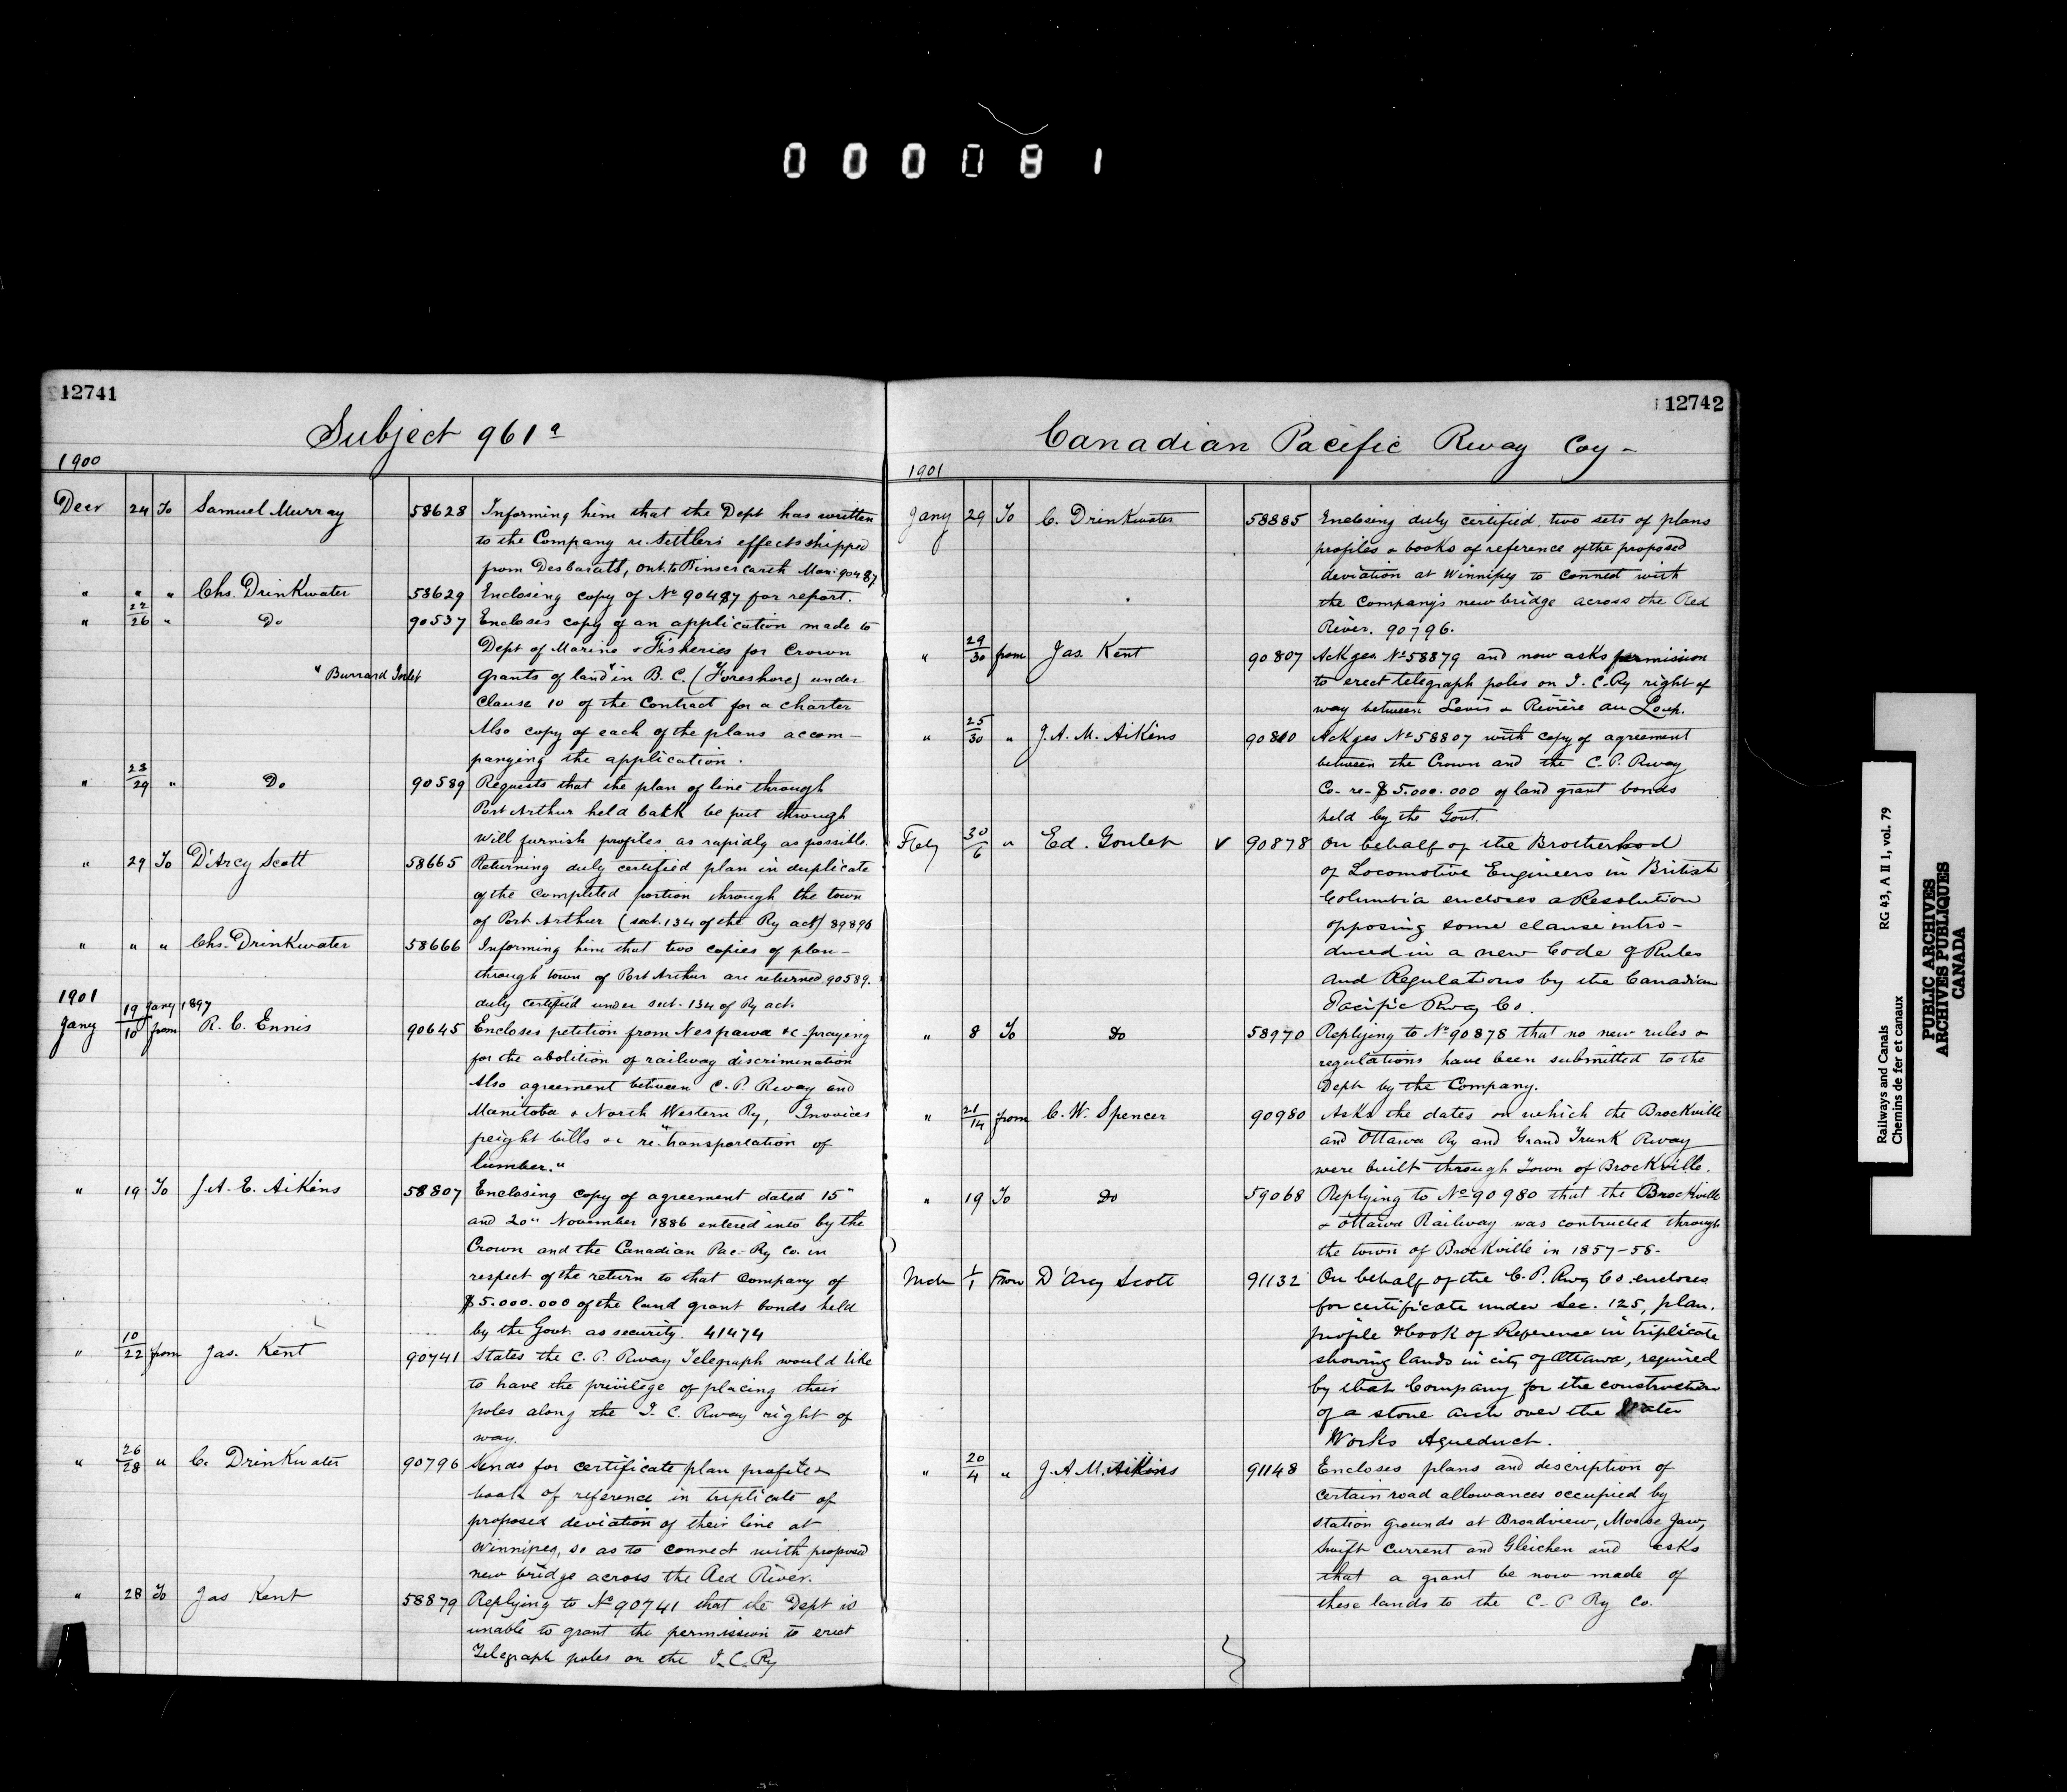 000081
12741
Subject 961a
1900
Decr 24 To Samuel Murray 58628 Informing him that the Dept has written
to the Company re settlers effects shipped
from Desbarats, Ont. to Binscarth Man: 90487
" " " Chs. Drinkwater 58629 Enclosing copy of No 90487 for report.
" 22/26 " Do 90537 Encloses copy of an application made to
Dept of Marine & Fisheries for Crown
"Burrard Inlet grants of land" in B.C. (Foreshore) under
Clause 10 of the Contract for a charter
Also copy of each of the plans accom-
panying the application.
" 28/29 " Do 90589 Requests that the plan of line through
Port Arthur held back be put through
will furnish profiles as rapidly as possible.
" 29 To D'Arcy Scott 58665 Returning duly certified plan in duplicate
of the completed portion through the town
of Port Arthur (sect. 134 of the Ry act) 89896
" " " Chs. Drinkwater 58666 Informing him that two copies of plan-
through town of Port Arthur are returned 90589.
duly certified under sect. 134 of Ry act.
1901
Jany 19 Jany 1897/10 from R. C. Ennis 90645 Encloses petition from Nespawa &c praying
for the abolition of railway discrimination
Also agreement between C.P. Rway and
Manitoba & North Western Ry, Invoices
freight bills &c re "transportation of
lumber."
" 19 To J.A.E. Aikins 58807 Enclosing copy of agreement dated 15"
and 20" November 1886 entered into by the
Crown and the Canadian Pac- Ry Co. in
respect of the return to that Company of
$5.000.000 of the land grant bonds held
by the Govt. as security. 41474
" 10/22 from Jas. Kent 90741 States the C.P. Rway Telegraph would like
to have the privilege of placing their
poles along the I.C. Rway right of
way.
" 26/28 " C. Drinkwater 90796 Sends for certificate plan profile &
book of reference in triplicate of
proposed deviation of their line at
Winnipeg, so as to connect with proposed
new bridge across the Red River.
" 28 To Jas Kent 58879 Replying to No 90741 that the Dept is
unable to grant the permission to erect
Telegraph poles on the I.C. Ry
12742
Canadian Pacific Rway Coy-
1901
Jany 29 To C. Drinkwater 58885 Enclosing duly certified, two sets of plans
profiles & books of reference of the proposed
deviation at Winnipeg to connect with
the Company's new bridge across the Red
River. 90796.
" 29/30 from Jas. Kent 90807 Ackges No 58879 and now asks permission
to erect telegraph poles on I.C. Ry right of
way between Levis & Rivière au Loup.
" 25/30 " J.A.M. Aikins 90810 Ackges No 58807 with copy of agreement
between the Crown and the C.P. Rway
Co- re- $5.000.000 of land grant bonds
held by the Govt.
Feby 30/6 " Ed. Goulet v 90878 On behalf of the Brotherhood
of Locomotive Engineers in British
Columbia encloses a Resolution
opposing some clause intro-
duced in a new Code of Rules
and Regulations by the Canadian
Pacific Rway Co.
" 8 To Do 58970 Replying to No 90878 that no new rules &
regulations have been submitted to the
Dept by the Company.
" 21/14 from C.W. Spencer 90980 Asks the dates on which the Brockville
and Ottawa Ry and Grand Trunk Rway
were built through Town of Brockville.
" 19 To Do 59068 Replying to No 90980 that the Brockville
& Ottawa Railway was contructed through
the town of Brockville in 1857-58-
Mch 1/1 From D'Arcy Scott 91132 On behalf of the C.P. Rwy Co. encloses
for certificate under Sec. 125, plan.
profile & book of Reference in triplicate
showing lands in city of Ottawa, required
by that Company for the construction
of a stone arch over the Water
Works Aqueduct.
" 20/4 " J.A.M. Aikins 91148 Encloses plans and description of
certain road allowances occupied by
station grounds at Broadview, Moose Jaw,
Swift Current and Gleichen and asks
that a grant be now made of
these lands to the C.P Ry Co.
Railways and Canals
Chemins de fer et canaux
RG 43, A II 1, vol. 79
PUBLIC ARCHIVES
ARCHIVES PUBLIQUES
CANADA